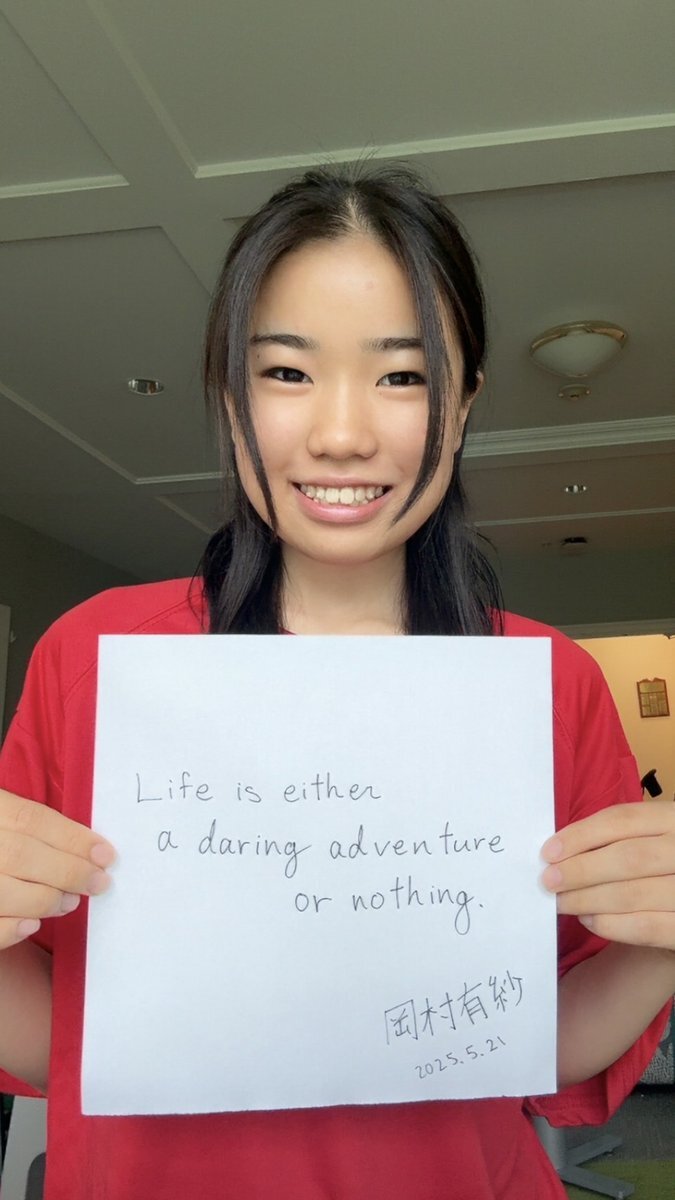 Life is either
a daring adventure
or nothing.
岡村有紗
2025.5.21